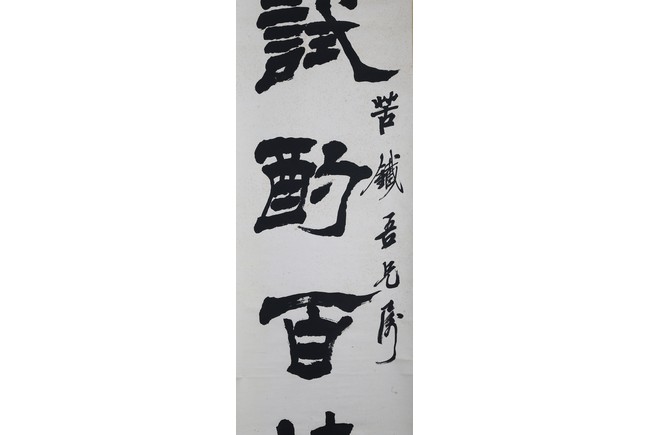 苦鐵吾兄屬
試酌百